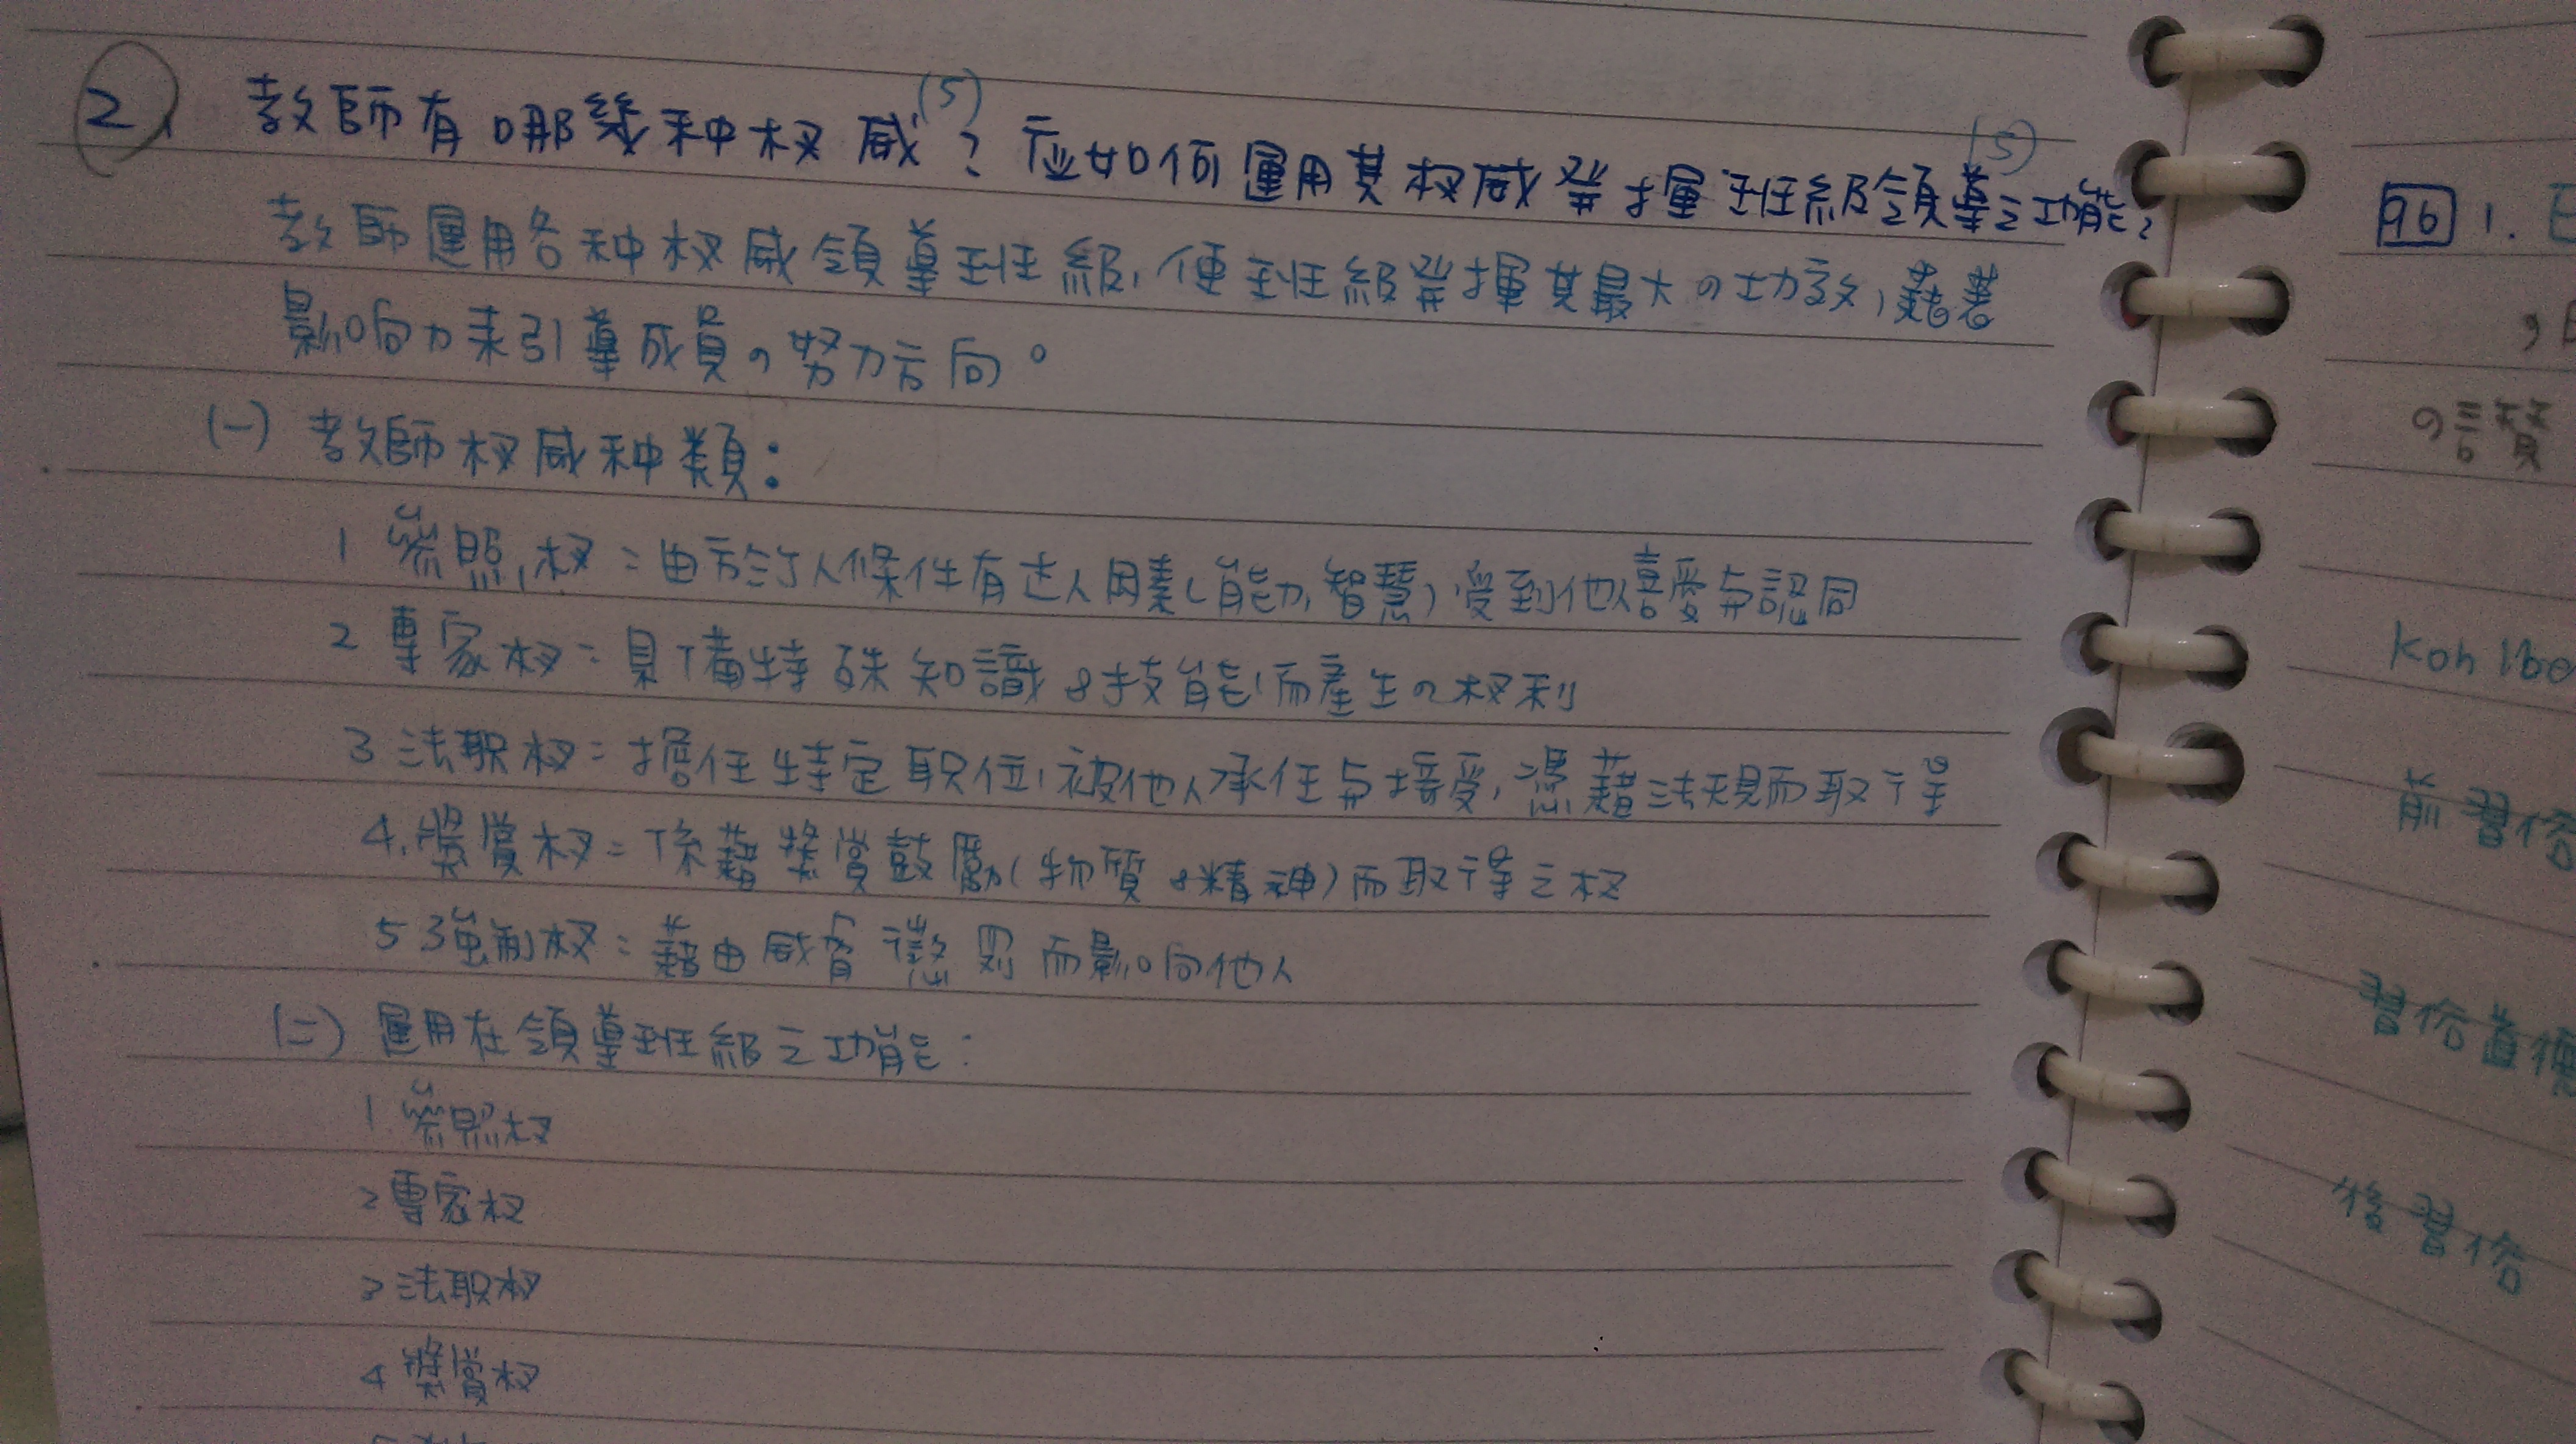 2、教師有哪幾种权威(5)？应如何運用其权威發揮班級領導之功能(5)?
教師運用各种权威領導班級，使班級發揮其最大の功效，藉著
影响力來引導成員の努力方向。
(一) 教師权威种類：
1 參照权：由於个人條件有迷人因素(能力,智慧)，受到他人喜愛與認同
2 專家权：具備特殊知識&技能,而產生の权利
3 法职权：擔任特定职位,被他人承任與接受,憑藉法規而取得
4.獎賞权：係藉獎賞鼓勵(物質&精神)而取得之权
5 強制权：藉由威脅懲罰而影响他人
(二) 運用在領導班級之功能：
1 參照权
2 專家权
3 法职权
4 獎賞权
96 1.
の讚
Kohlbe
前習俗
習俗道德
後習俗